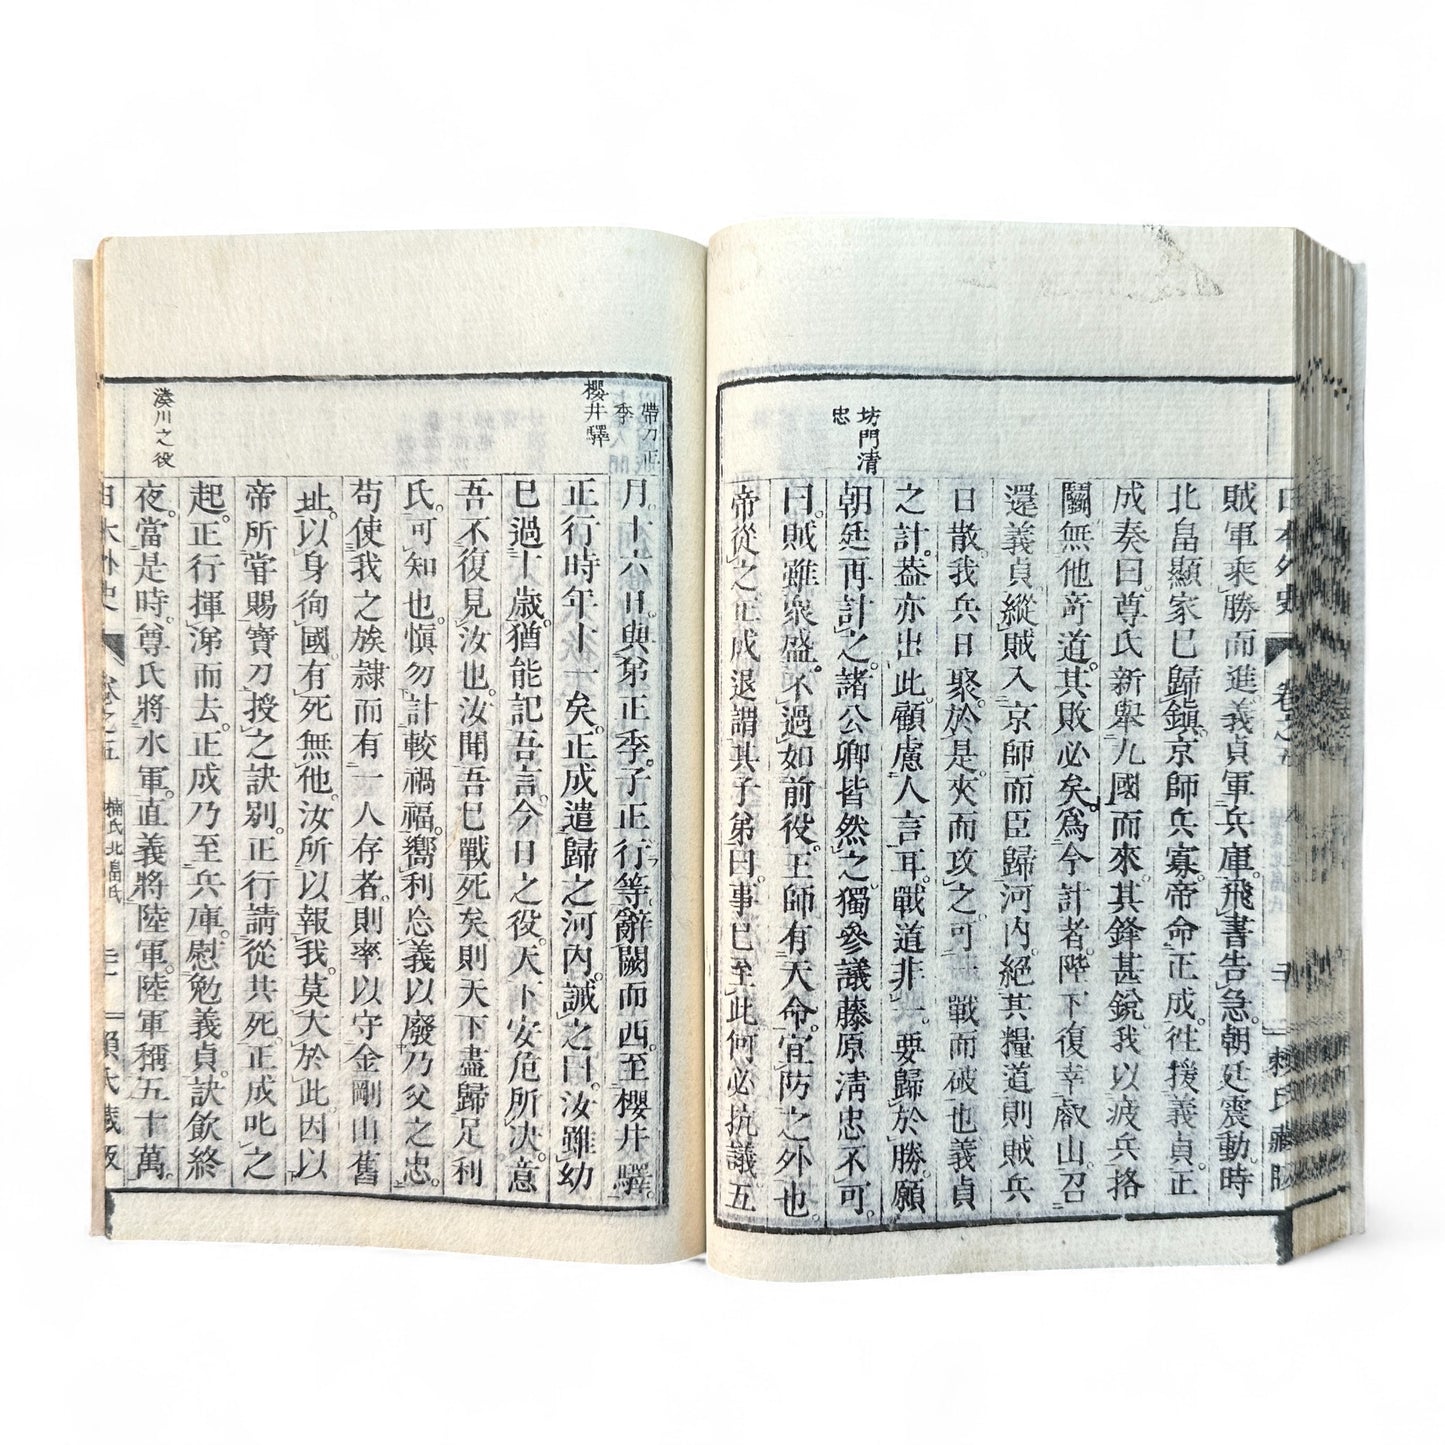 坊門清
忠
日本外史
卷之五
賴氏藏版
賊軍乘勝而進。義貞軍兵庫。飛書告急。朝廷震動。時
北畠顯家已歸鎮。京師兵寡。帝命正成。往援義貞。正
成奏曰。尊氏新舉九國而來。其鋒甚銳。我以疲兵挌
鬭無他奇道。其敗必矣。爲今計者。陛下復幸叡山。召
還義貞。縱賊入京師。而臣歸河内。絕其糧道。則賊兵
日散。我兵日聚。於是夾而攻之。可一戰而破也。義貞
之計。蓋亦出此。顧慮人言耳。戰道非一。要歸於勝。願
朝廷再計之。諸公卿皆然之。獨參議藤原清忠不可。
曰。賊雖衆盛。不過如前役。王師有天命。宜防之外也。
帝從之。正成退謂其子弟曰。事已至此。何必抗議。五
帶刀正
季
櫻井驛
湊川之役
月十六日。與弟正季。子正行等。辭闕而西。至櫻井驛。
正行時年十一矣。正成遣歸之河内。誡之曰。汝雖幼
已過十歲。猶能記吾言。今日之役。天下安危所決。意
吾不復見汝也。汝聞吾已戰死矣。則天下盡歸足利
氏。可知也。愼勿計較禍福。嚮利忘義。以廢乃父之忠。
苟使我之族隷而有一人存者。則率以守金剛山舊
址。以身徇國。有死無他。汝所以報我。莫大於此。因以
帝所甞賜寶刀授之訣別。正行請從共死。正成叱之
起。正行揮涕而去。正成乃至兵庫。慰勉義貞。訣飲終
夜。當是時。尊氏將水軍。直義將陸軍。陸軍稱五十萬。
日本外史
卷之五
楠氏北畠氏
賴氏藏版